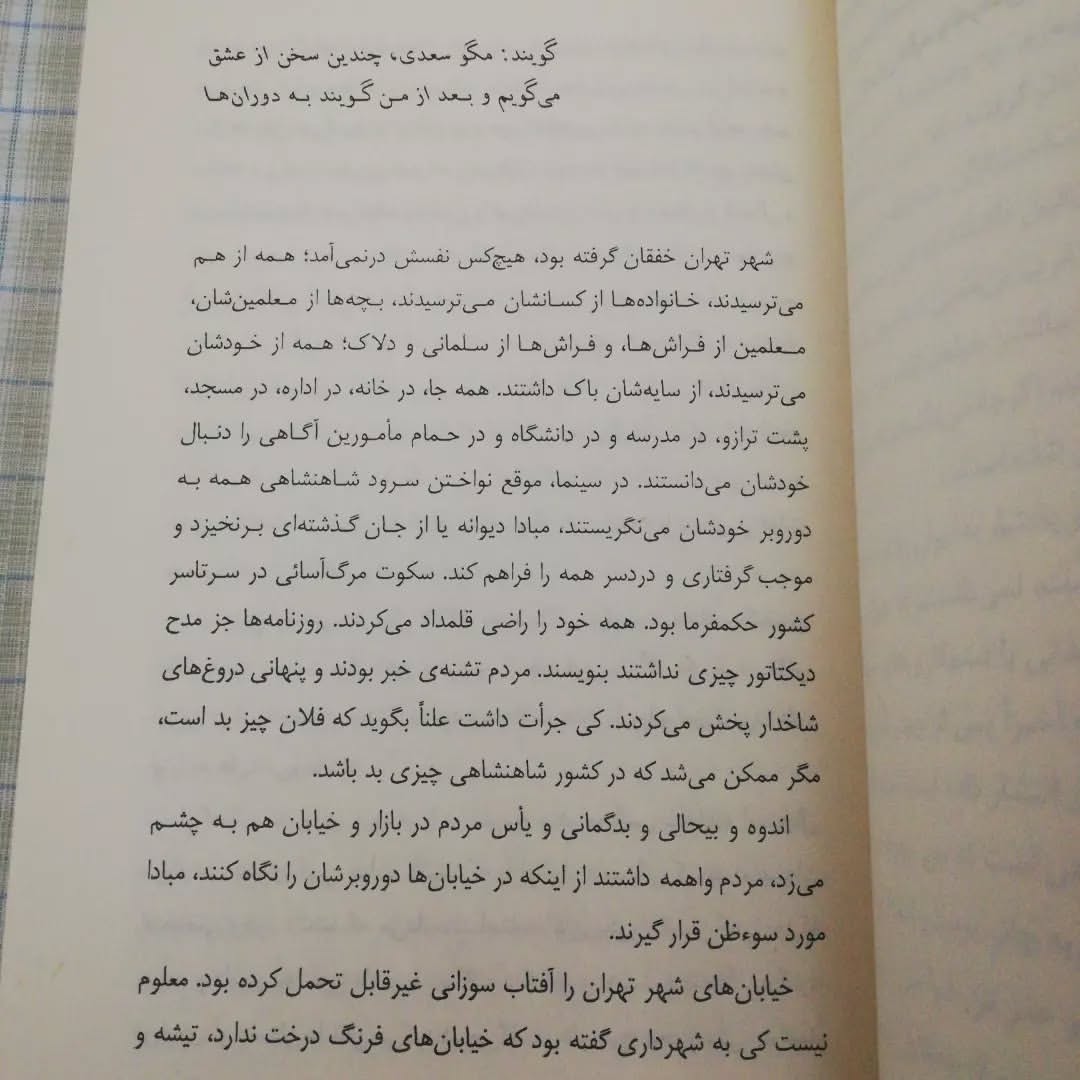 گویند: مگو سعدی، چندین سخن از عشق
می‌گویم و بعد از من گویند به دوران‌ها
شهر تهران خفقان گرفته بود، هیچ‌کس نفسش درنمی‌آمد؛ همه از هم
می‌ترسیدند، خانواده‌ها از کسانشان می‌ترسیدند، بچه‌ها از معلمین‌شان،
معلمین از فراش‌ها، و فراش‌ها از سلمانی و دلاک؛ همه از خودشان
می‌ترسیدند، از سایه‌شان باک داشتند. همه جا، در خانه، در اداره، در مسجد،
پشت ترازو، در مدرسه و در دانشگاه و در حمام مأمورین آگاهی را دنبال
خودشان می‌دانستند. در سینما، موقع نواختن سرود شاهنشاهی همه به
دوروبر خودشان می‌نگریستند، مبادا دیوانه یا از جان گذشته‌ای برنخیزد و
موجب گرفتاری و دردسر همه را فراهم کند. سکوت مرگ‌آسائی در سرتاسر
کشور حکمفرما بود. همه خود را راضی قلمداد می‌کردند. روزنامه‌ها جز مدح
دیکتاتور چیزی نداشتند بنویسند. مردم تشنه‌ی خبر بودند و پنهانی دروغ‌های
شاخدار پخش می‌کردند. کی جرأت داشت علناً بگوید که فلان چیز بد است،
مگر ممکن می‌شد که در کشور شاهنشاهی چیزی بد باشد.
اندوه و بیحالی و بدگمانی و یأس مردم در بازار و خیابان هم به چشم
می‌زد، مردم واهمه داشتند از اینکه در خیابان‌ها دوروبرشان را نگاه کنند، مبادا
مورد سوءظن قرار گیرند.
خیابان‌های شهر تهران را آفتاب سوزانی غیرقابل تحمل کرده بود. معلوم
نیست کی به شهرداری گفته بود که خیابان‌های فرنگ درخت ندارد، تیشه و